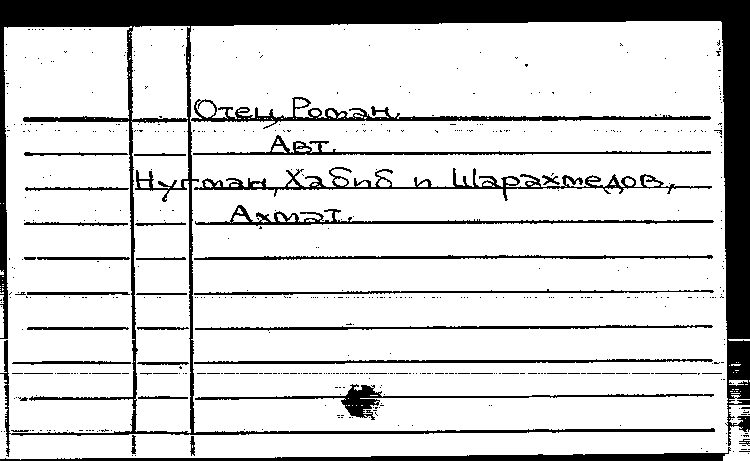 Отец. Роман.
Авт.
Нугман, Хабиб и Шарахмедов,
Ахмат.